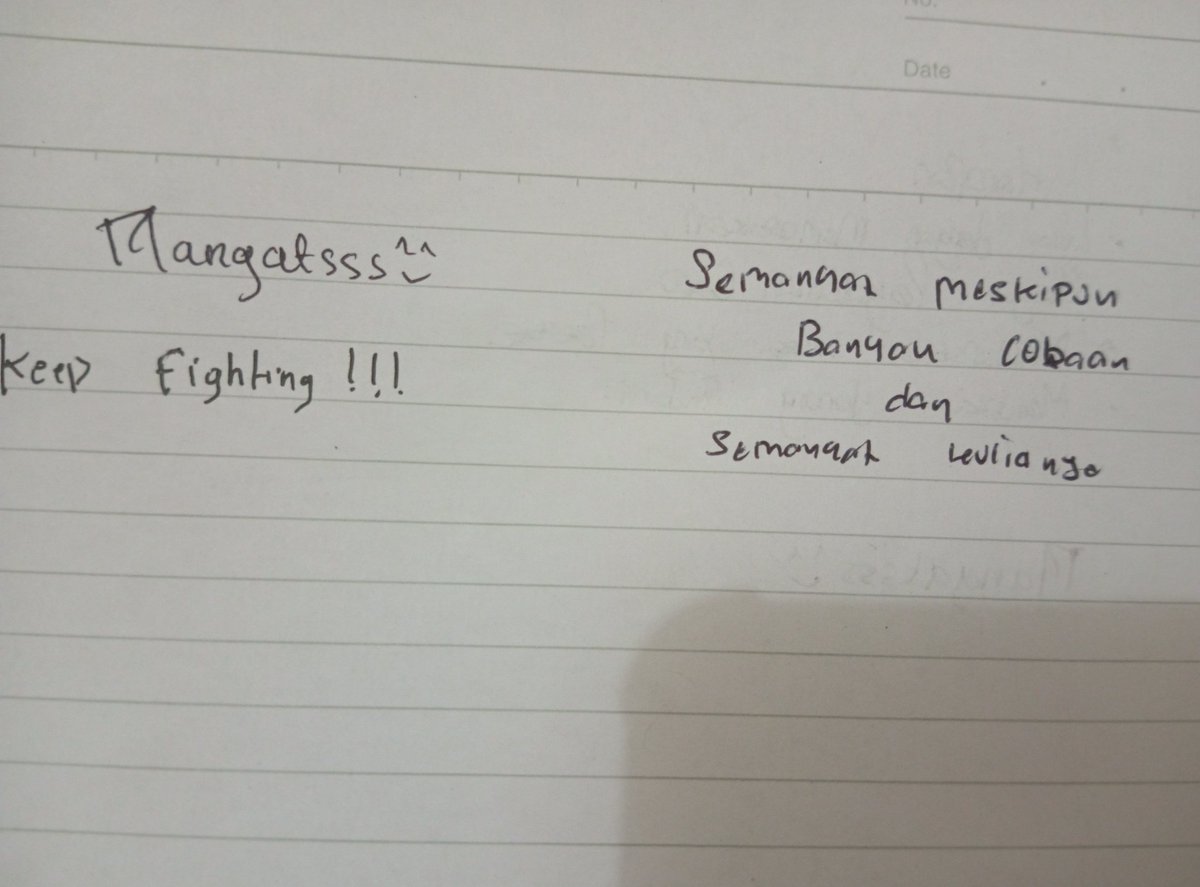 No.
Date
Mangatsss
Keep Fighting !!!
Semangat meskipun
Banyak cobaan
dan
Semangat kulianya